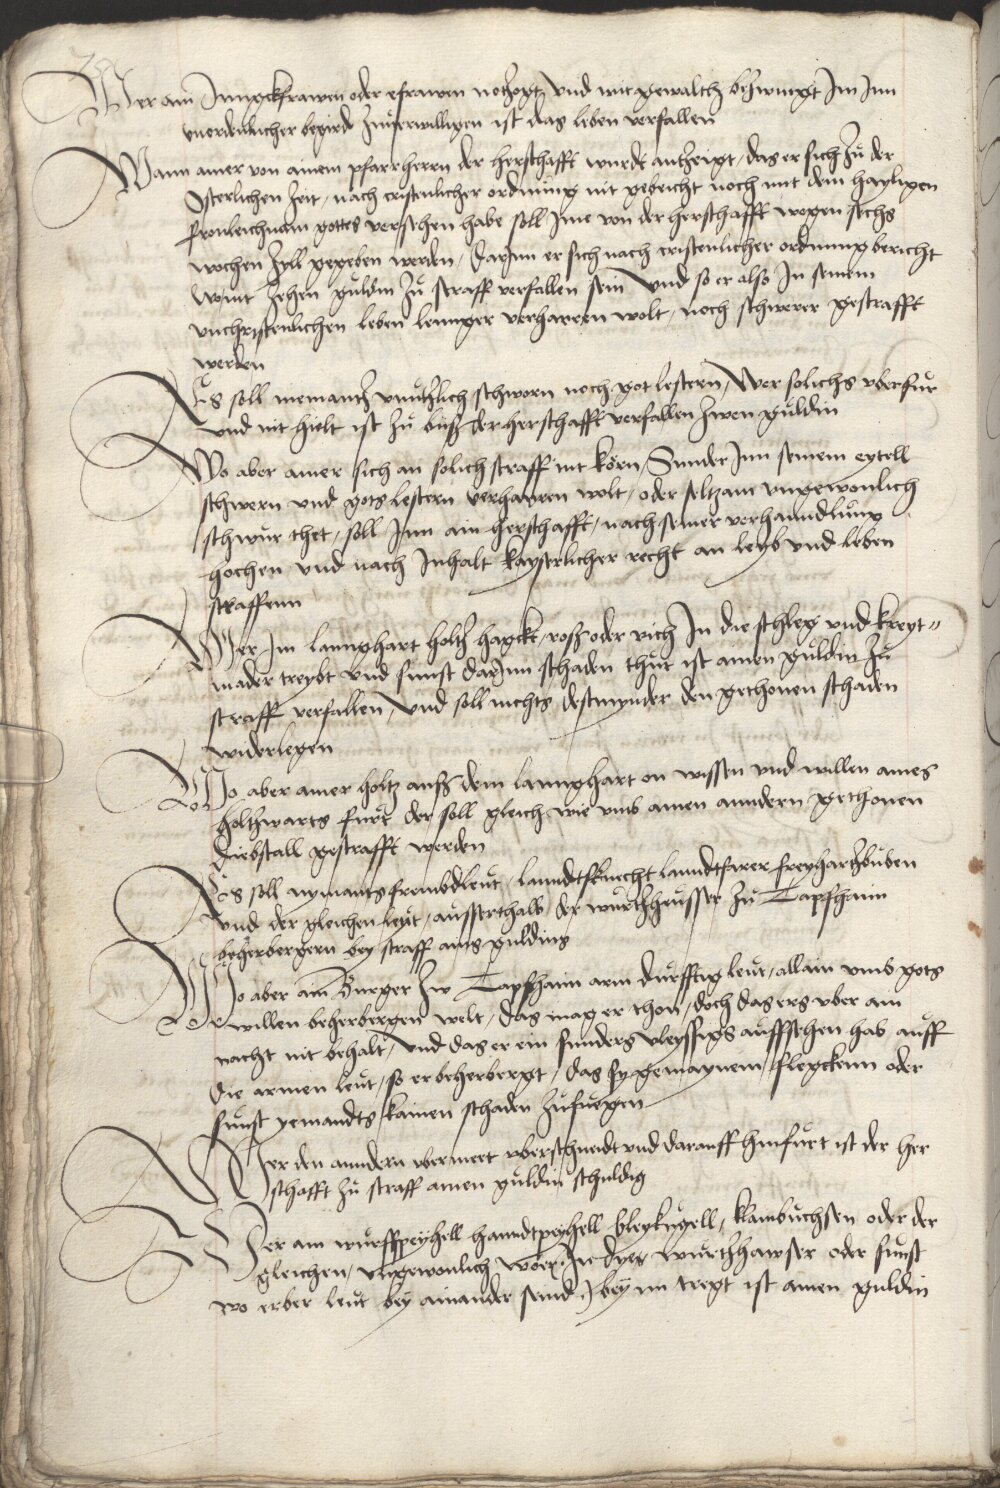 Wer ain Jungckfrawen oder efrawen notzogt, und mit gewaltz bezwingt Im Inn
unerdenlicher begirde Zuverwilligen ist das leben verfallen
Wann ainer von ainem pfarrherrn der herschafft wurde antzeigt, das er sich zů der
Osterlichen Zeit, nach cristenlicher ordnung nit gebeicht noch mit dem hayligen
fronleichnam gottes versehen habe soll Ime von der herschafft wegen sechs
wochen Zyll gegeben werden, darInn er sich nach cristenlicher ordnung bericht
Wo nit Zehen guldin Zů straff verfallen sein Und so er also In seinem
unchristenlichen leben lennger verharren wolt, noch schwerer gestrafft
werden
Es soll niemantz unnützlich schworn noch got lestern, Wer solichs uberfur
und nit hielt ist Zů bůß der herschafft verfallen Zwen guldin
Wo aber ainer sich an solich straff nit körn, Sunder Inn seinem eytell
schwern und gots lestern verharren wolt, oder seltzam ungewonlich
schwůr thet, soll Inn ain herschafft, nach seiner verhanndlung
hochen und nach Inhalt kayserlicher recht an leyb und leben
straffenn
Wer Im lannghart holtz hagckt, ross oder vich In die schleg und kreyt=
mader treybt und sunst darInn schaden thůt ist ainen guldin Zů
straff verfallen, Und soll nichts destmynder den gethonen schaden
widerlegen
Wo aber ainer holtz auß dem lannghart on wissen und willen aines
holtzwarts fůrt der soll gleich wie umb ainen anndern gethonen
diebstall gestrafft werden
Es soll nymants frembdleůt, lanndtßknecht lanndtfarer freyhartzbůben
und der gleichen leůt, ausserthalb der wůrtzheusser Zů Tapfhaim
beherbergern bey straff ains guldins
Wo aber ain Burger Zw Tapfhaim arm dürfftig leut, allain umb gots
willen beherbergen welt, das mag er thon, doch das ers uber ain
nacht nit behalt, und das er ein sunders vleyssigs auffsehen hab auff
die armen leůt, so er beherbergt, das sy gemaynem flegckenn oder
sunst yemandts kainen schaden Zufuegen
Wer den anndern ubermeet uberschneidt und darauff hinfůrt ist der her
schafft Zů straff ainen guldin schuldig
Wer ain wurffpeyhell hanndtpeyhell bleykugell, klainbuchsen oder der
gleichen, ungewonlich woer In dye wurtzhewser oder sunst
wo erber leůt bey ainander seind, bey im tregt ist ainen guldin